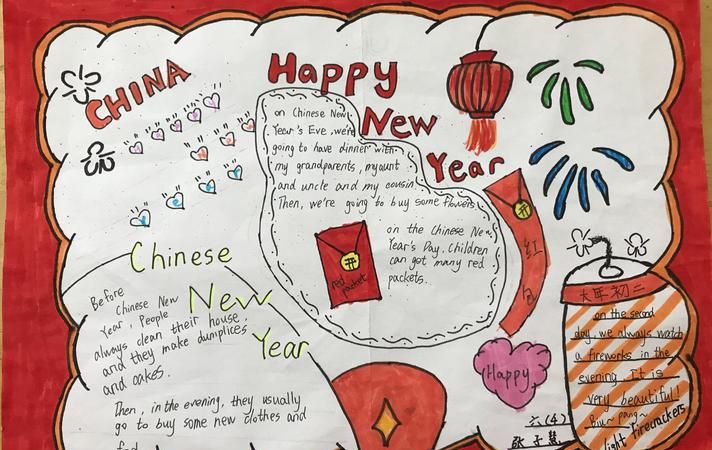 CHINA
Happy
New
Year
on Chinese New
Year's Eve, we're
going to have dinner with
my grandparents, my aunt
and uncle and my cousin
Then, we're going to buy some flowers
on the Chinese New
Year's Day. Children
can got many red
packets.
red
packet
红
包
Chinese
New
Year
Before
Chinese New
Year, People
always clean their house,
and they make dumplices
and oakes.
Then, in the evening, they usually
go to buy some new clothes and
Happy
大年初二
on the second
day, we always watch
a fireworks in the
evening It is
very beautiful!
Biu~ pang~
light firecrackers
六(4)
张子慧